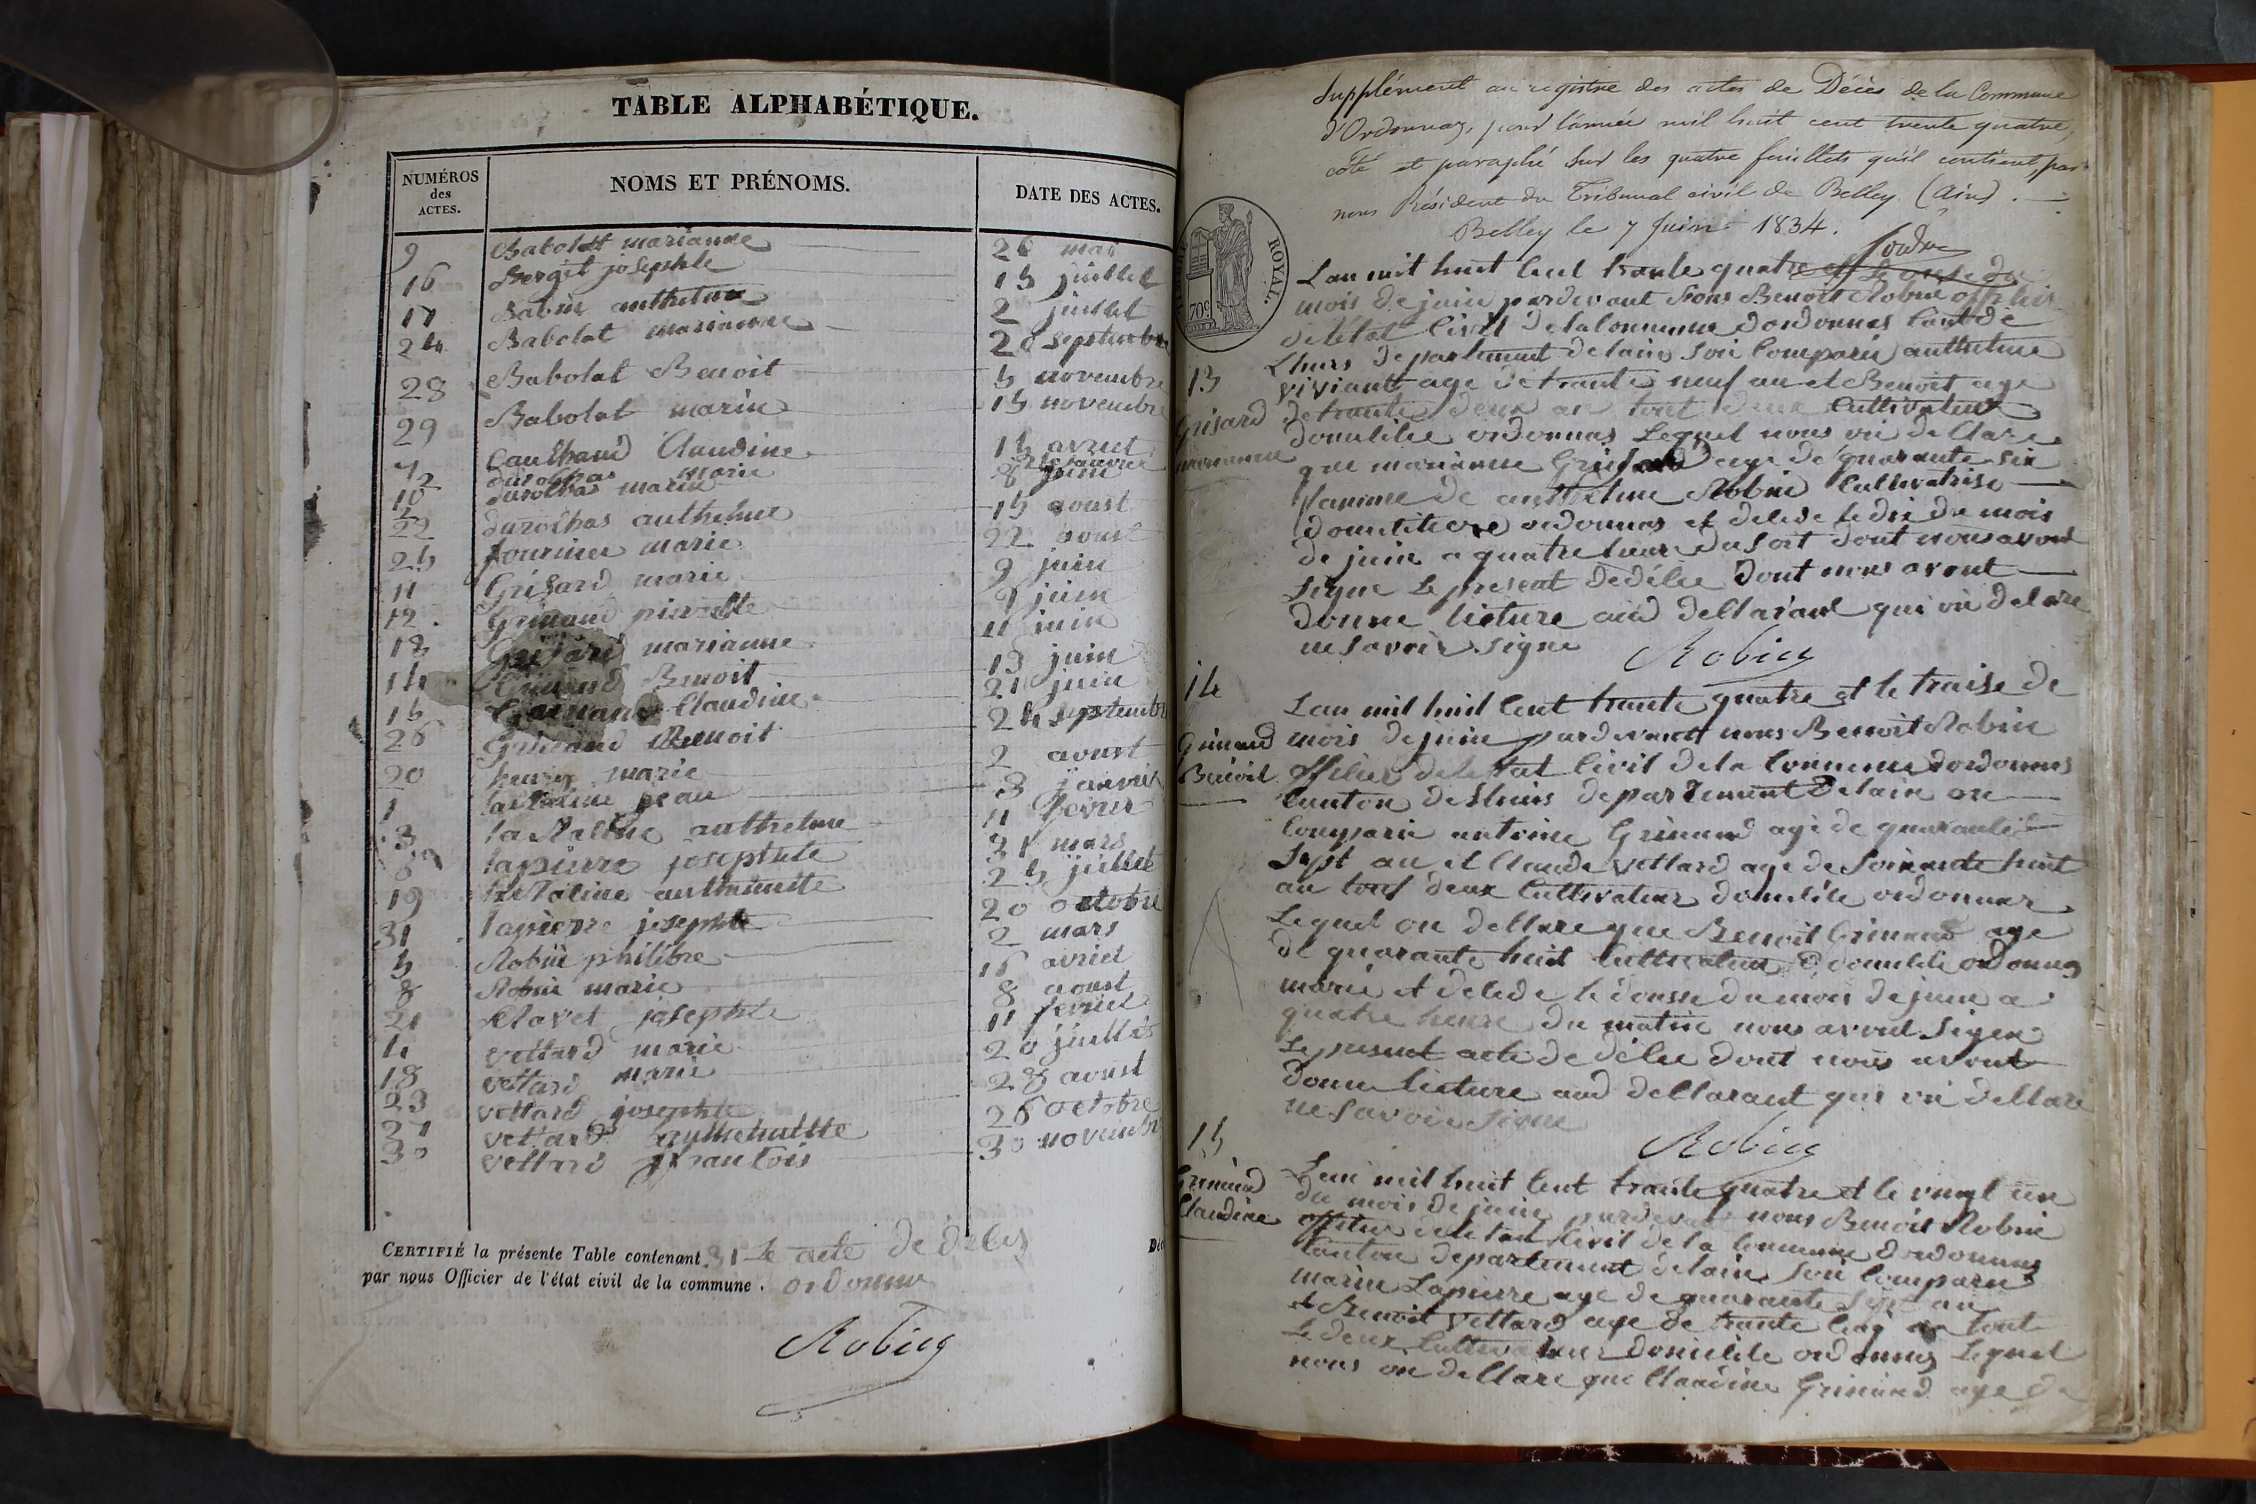 TABLE ALPHABÉTIQUE.
NUMÉROS des ACTES.
NOMS ET PRÉNOMS.
DATE DES ACTES.
9 Babolat marianne 26 mai
16 Bergit josephte 15 juillet
17 Babin anthelme 2 juillet
24 Babolat marianne 20 septembre
28 Babolat Benoit 5 novembre
29 Babolat marin 15 novembre
7 Claudine 15 avril
2 durochas marie
10 durochas marin 8 juin
22 durochas anthelme 15 aoust
25 fournier marie 22 aoust
11 Grisard marie 9 juin
12 Grimand pierrette 9 juin
13 Grisard marianne 11 juin
14 Grimand Benoit 13 juin
15 Grimand Claudine 21 juin
26 Grimand Benoit 24 septembre
20 marie 2 aoust
1 jean 3 janvier
3 anthelme 11 fevrier
6 lapierre josephte 31 mars
19 25 juillet
31 lapierre josephte 20 octobre
5 Robin philibre 2 mars
8 Robin marie 16 avriel
21 josephte 8 aoust
4 vettard marie 11 fevriel
18 vettard marie 20 juillet
23 vettard josephte 28 aoust
27 vettard anthelmette 26 octobre
30 vettard francois 30 novembre
CERTIFIÉ la présente Table contenant 31 Le acte de déces
par nous Officier de l'état civil de la commune . ordonna
Robin
Supplément au registre des actes de Décès de la Commune
d'Ordonnaz, pour l'année mil huit cent trente quatre,
coté et paraphé sur les quatre feuillets qu'il contient, par
nous Président du Tribunal civil de Belley (Ain).
Belley le 7 Juin 1834.
ROYAL.
70c.
13
Grisard
marianne
Lan mil huit cent trante quatre et le onse du
mois de juin pardevant nous Benoit Robin officier
de letat civil de la Commune dordonnas cant de
Lhuis departement de lain son comparu anthelme
viviant age de trante neuf an et Benoit age
de trante deux an tout deux cultivateur
domicilie ordonnas Lequel nous on de clare
que marianne Grisard age de quarante six
famme de anthelme Robin cultivatrise
domiciliere ordonnas et decede le dix du mois
de juin a quatre heur du soir dont nous avont
signe le present de déce dont nous avont
donne lecture aux declarant qui on delare
ne savoir signe
Robin
14
Grimand
Benoit
Lan mil huit cent trante quatre et le traise de
mois de juin pardevant nous Benoit Robin
officier de letat civil de la Commune dordonnas
canton de Lhuis departement de lain on
comparu antoine Grimand age de quarante
sept an et Claude vettard age de soixante huit
an tout deux cultivateur domicile ordonnas
Lequel on declare que Benoit Grimand age
de quarante huit cultivateur domicile ordonnas
marié et decede le dousse du mois de juin a
quatre heure du matin nous avont signe
Le presant acte de déce dont nous avont
donne lecture aux declarant qui on declare
ne savoir signe
Robin
15
Grimand
Claudine
Lan mil huit cent trante quatre et le vingt un
du mois de juin pardevant nous Benoit Robin
officier de letat civil de la commune dordonnas
canton departement de lain son comparu
marin Lapierre age de quarante sept an
et Benoit vettard age de trante cinq an tout
le deux cultivateur domicile ordonnas Lequel
nous on declare que Claudine Grimand age de